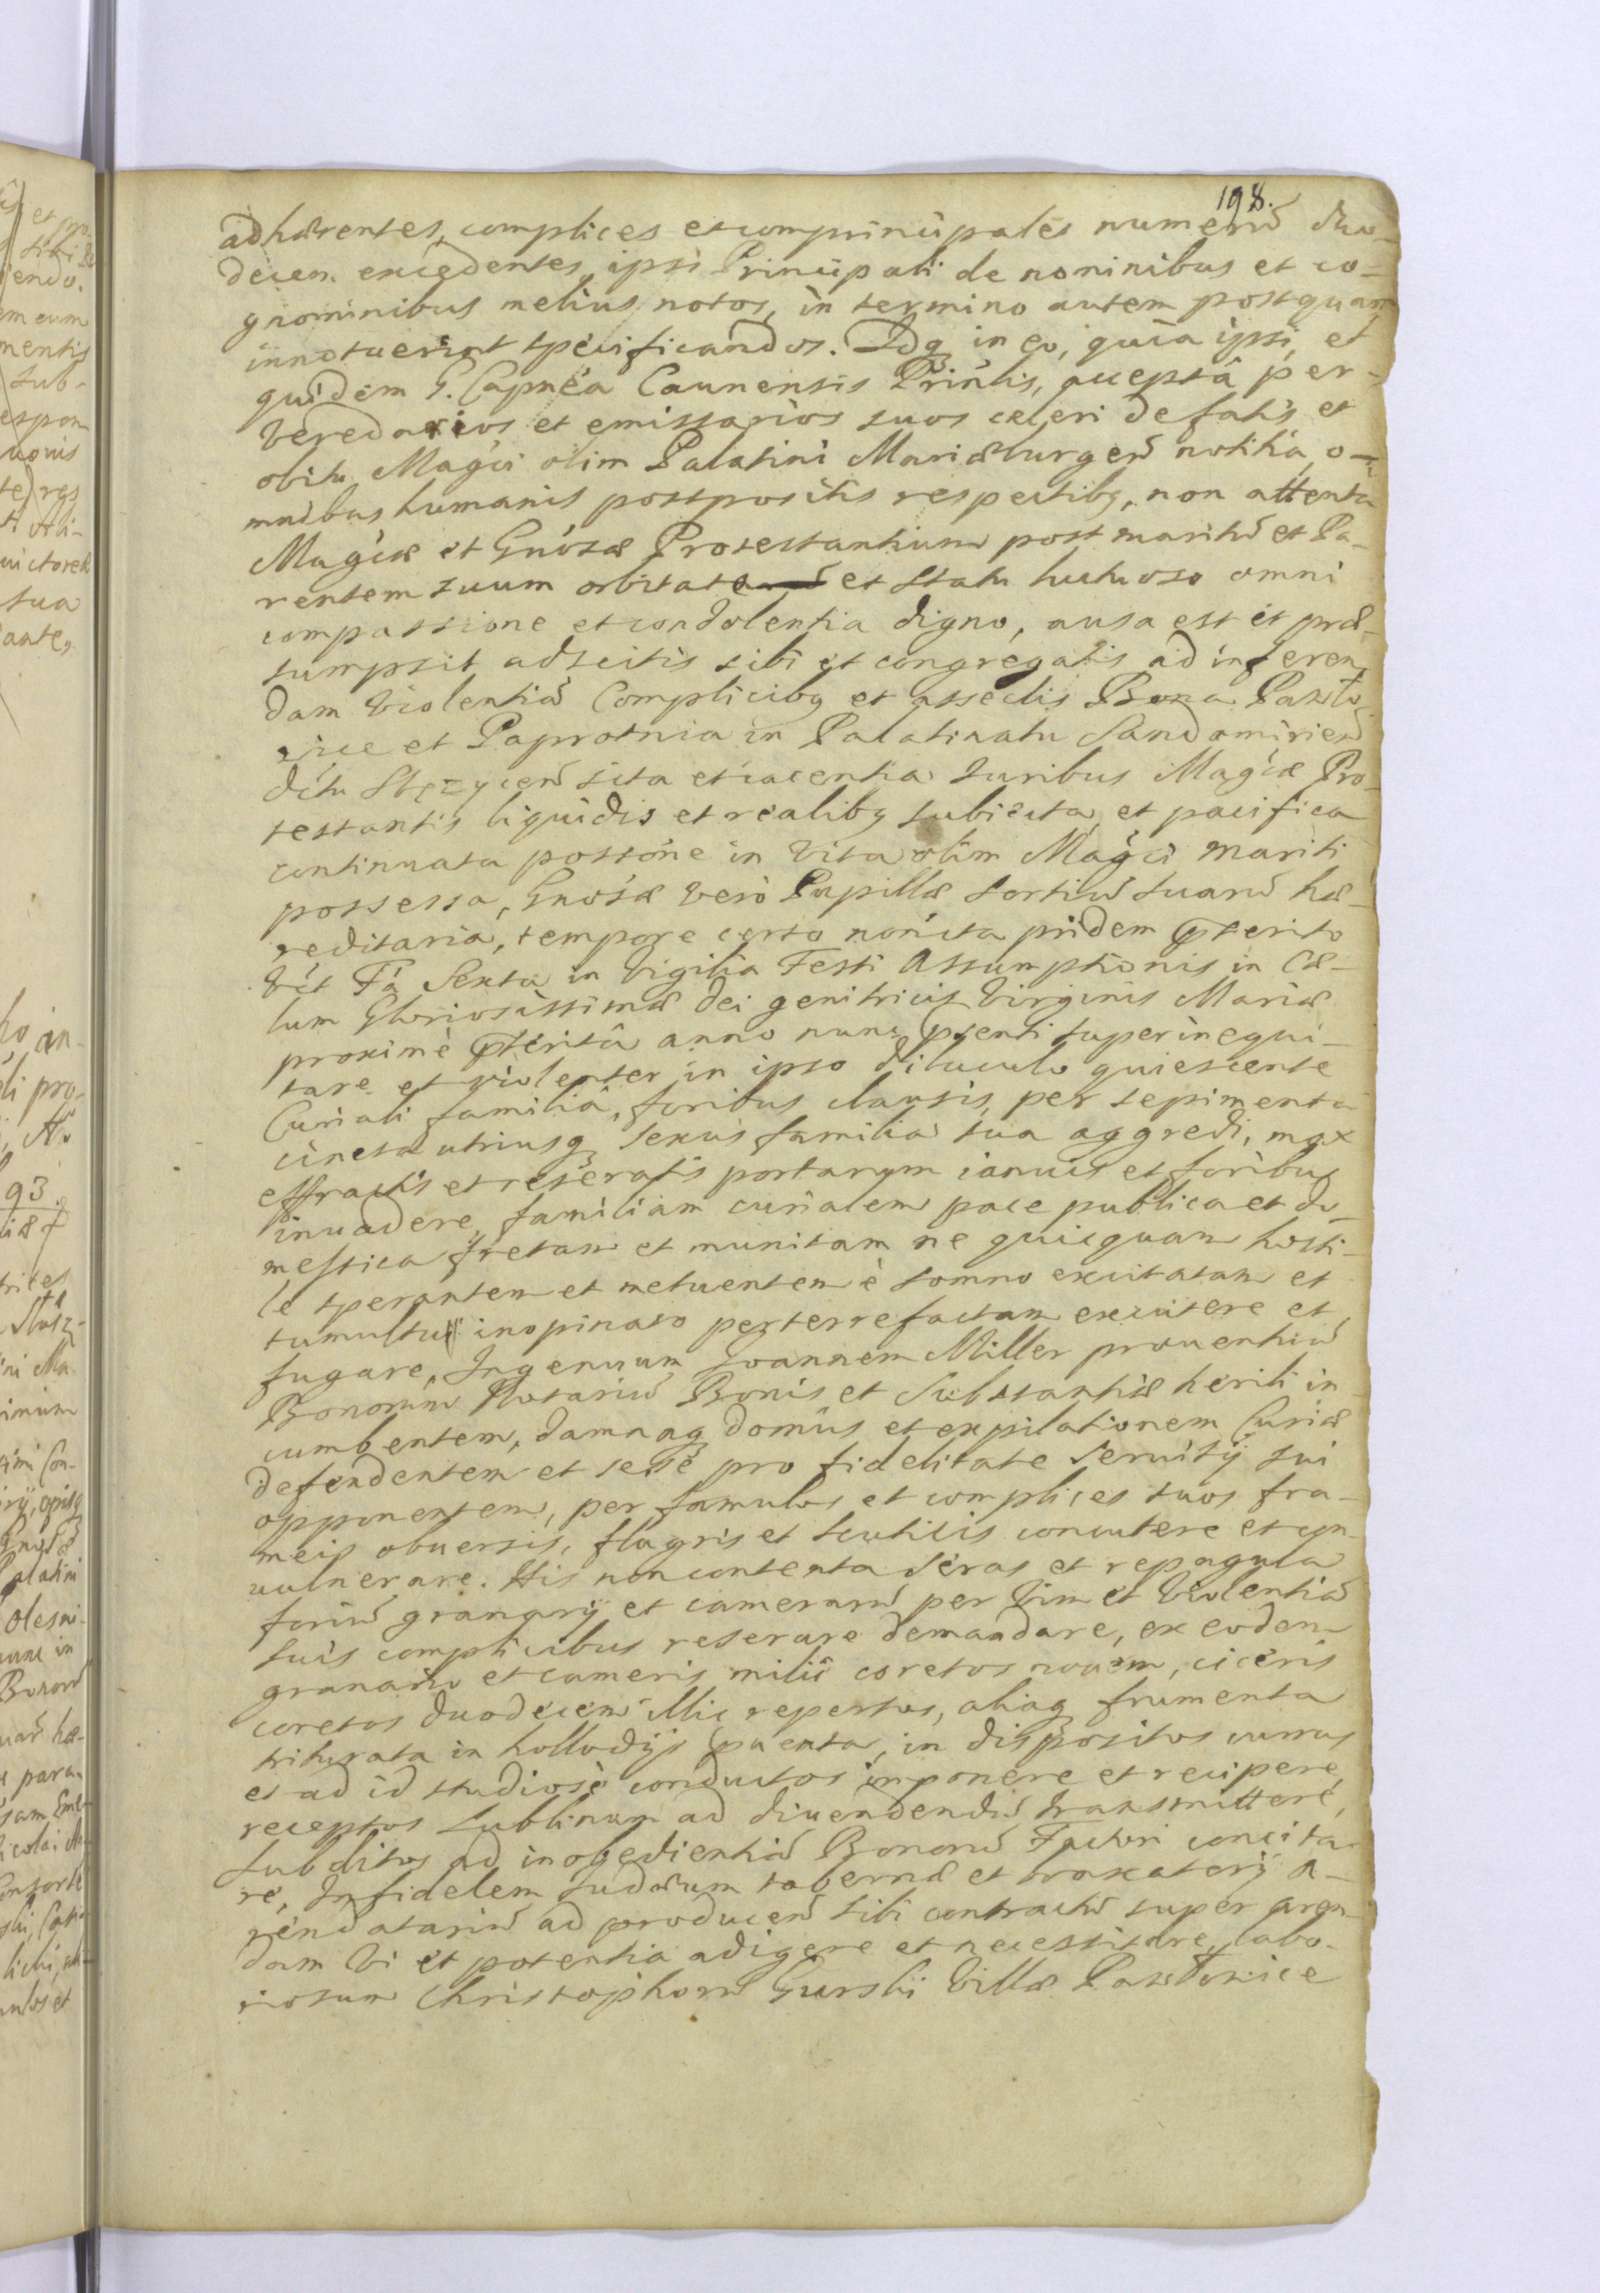 198.
adhærentes, complices et comprincipales numerũ duo-
decem excedentes, ipsi Principali de nominibus et co-
gnominibus melius notos, in termino autem postquam
innotuerint specificandos. Idq in eo, quia ipsi, et
quidem G. Capnea Caunensis Prîńlis, accepta per
veredarios et emissarios suos celeri de fatis et
obitu Magći olim Palatini Mariæburgeñ notitia, o-
mnibus humanis postpositis respectibq, non attenta
Magćæ et Gnósæ Protestantium post maritũ et Pa-
rentem suum orbitate et statu luctuoso omni
compassione et condolentia digno, ausa est et præ-
sumpsit adscitis sibi et congregatis ad inferen
dam violentiã Complicibq et asseclis Bona Pawło
wice et Paprotnia in Palatinatu Sandomirieñ
dićtu Stęzyceñ sita et iacentia Iuribus Magćæ Pro-
testantis liquidis et realibq subiecta, et pacifica
continuata possóne in vita olim Magći mariti
possessa, Gnósæ vero Pupillæ sortiũ suarũ hæ-
reditaria, tempore certo nonita pridem præterito
vćt Fâ Sexta in Vigilia Festi Assumptionis in Cæ-
lum Gloriosissimæ Dei genitricis Virginis Mariæ
proximè præteritâ anno nunc præsenti superinequi-
tare et violenter in ipso diluculo quiescente
Curiali familiâ, foribus clausis, per sepimenta
cincta utriusq sexus familia sua aggredi, mox
effractis et reseratis portarum ianuis et foribus
inuadere, familiam curialem pace publica et do-
mestica fretam et munitam ne quicquam hosti-
le sperantem et metuentem è somno excitatam et
tumultu inopinato perterrefactam excutere et
fugare, Ingenuum Ioannem Miller prouentuũ
Bonorum Notariũ Bonis et Substantiæ herili in
cumbentem, damnaq domûs et expilationem Curiæ
defendentem et sese pro fidelitate Seruitij sui
opponentem, per famulos et complices suos fra-
meis obuersis, flagris et scuticis concutere et con-
uulnerare. His non contenta seras et repagula
foriũ granarij et camerarũ per vim et violentiã
suis complicibus reserare demandare, ex eodem
granario et cameris milii coretos nouem, ciceris
coretos duodecem illic repertos, aliaq frumenta
triturata in hollodijs inuenta, in dispositos currus
et ad id studiosè conductos imponere et recipere,
receptos Lublinum ad diuendendũ transmittere,
subditos ad inobedientiã Bonorũ Factori concita-
re, Infidelem Iudæum tabernæ et braxatorij a-
rendatariũ ad producenđ sibi contractũ super aren-
dam vi et potentia adigere et necessitare, labo-
riosum Christophorũ Gurski Villæ Pawłowice